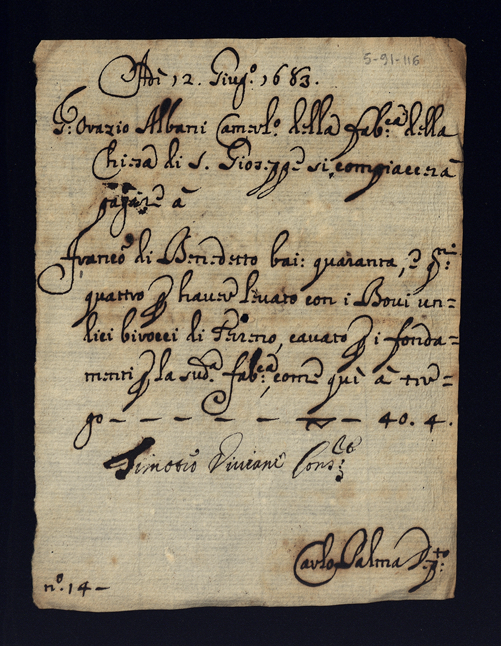 5-91-116
Adì 12. Giug.º 1683.
S.r Orazio Albani Camerl.º della fab.ca della
Chiesa di S. Gioseppe si compiacerà
pagare à
Franc.º di Benedetto bai: quaranta, e q.ni:
quattro p haver levato con i Bovi un=
dici birocci di Terreno, cavato p i fonda=
menti p la sud.a fab.ca, come quì à ter=
go — — — — — — — 40. 4.
Timoteo Viviani Cons.re
Carlo Palma D.to
nº. 14 –